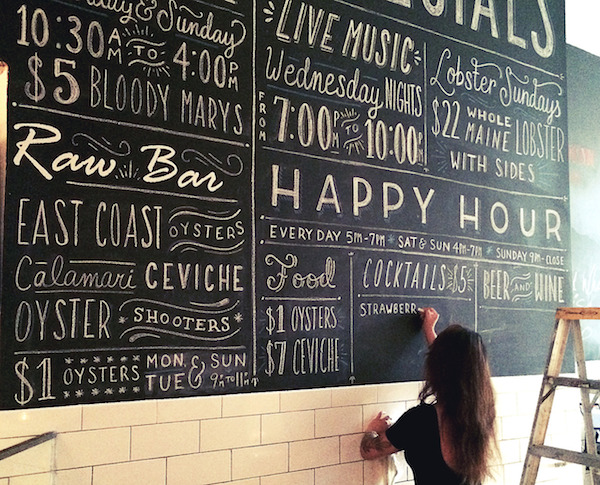 SPECIALS
Sunday
10:30 AM TO 4:00 PM
$5 BLOODY MARYS
Raw Bar
EAST COAST OYSTERS
Calamari CEVICHE
OYSTER SHOOTERS
$1 OYSTERS MON, TUE & SUN 9PM TO 11PM
LIVE MUSIC
Wednesday NIGHTS
FROM 7:00 PM TO 10:00 PM
Lobster Sundays
$22 WHOLE MAINE LOBSTER
WITH SIDES
HAPPY HOUR
EVERY DAY 5PM-7PM * SAT & SUN 4PM-7PM * SUNDAY 9PM-CLOSE
Food
$1 OYSTERS
$7 CEVICHE
COCKTAILS $5
STRAWBERR
BEER AND WINE